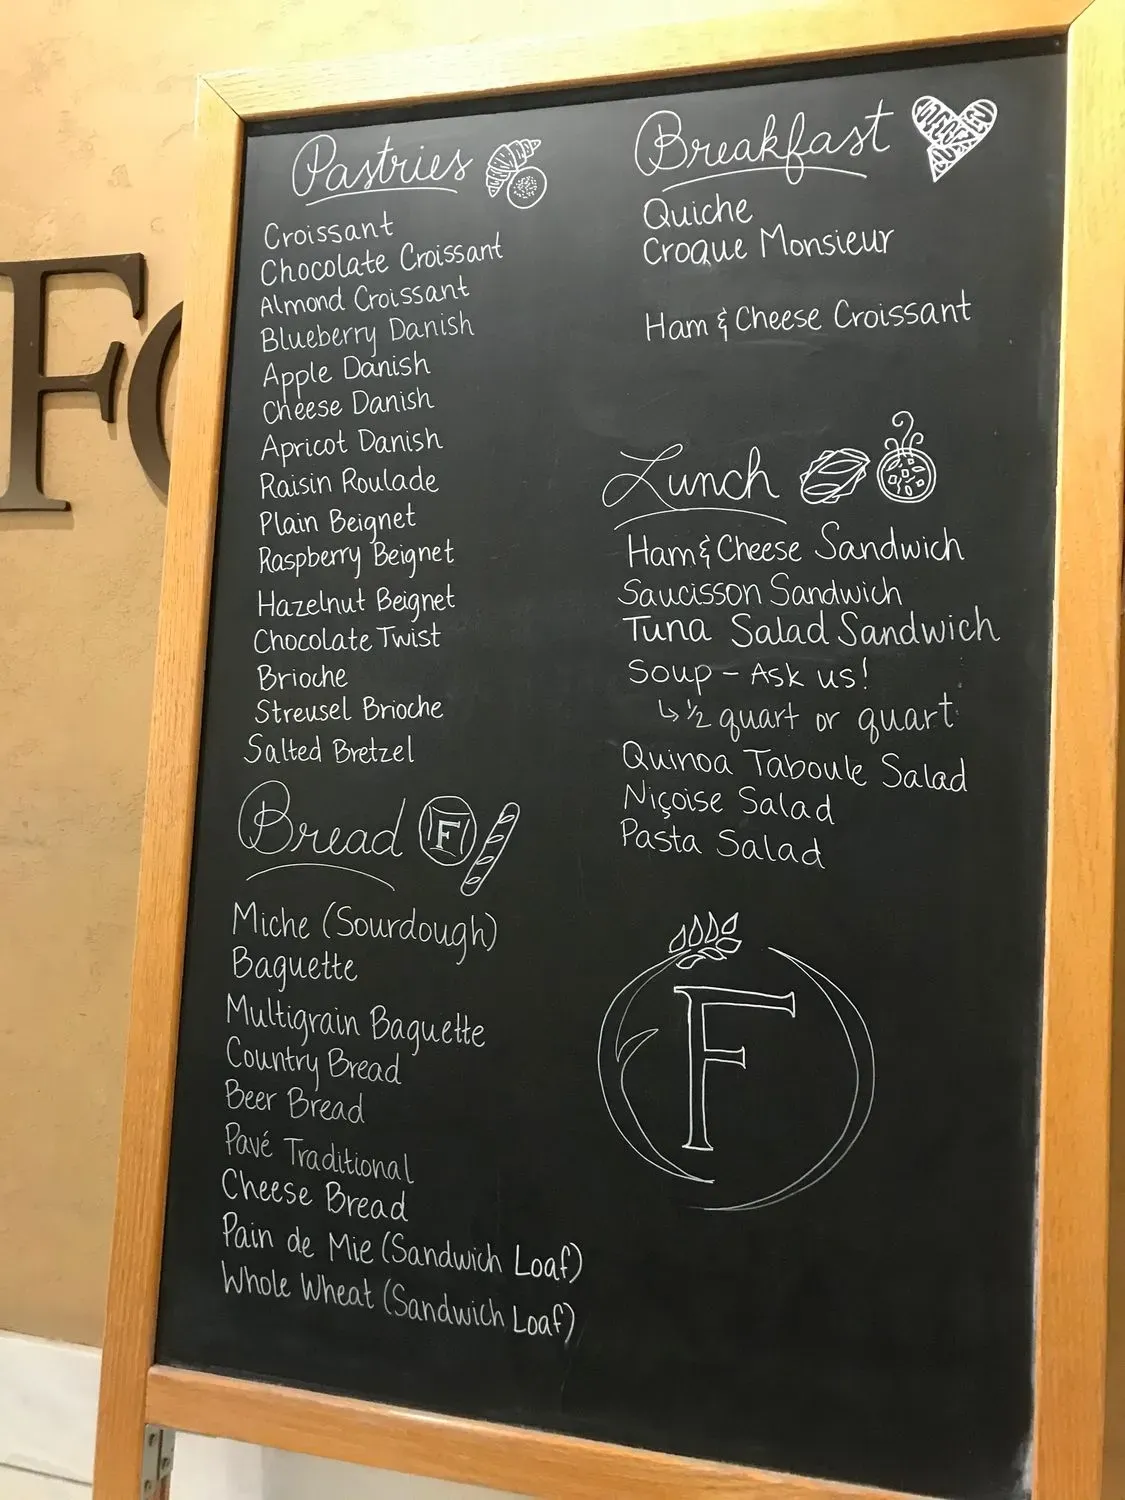 Pastries
Croissant
Chocolate Croissant
Almond Croissant
Blueberry Danish
Apple Danish
Cheese Danish
Apricot Danish
Raisin Roulade
Plain Beignet
Raspberry Beignet
Hazelnut Beignet
Chocolate Twist
Brioche
Streusel Brioche
Salted Bretzel
Bread
F
Miche (Sourdough)
Baguette
Multigrain Baguette
Country Bread
Beer Bread
Pavé Traditional
Cheese Bread
Pain de Mie (Sandwich Loaf)
Whole Wheat (Sandwich Loaf)
Breakfast
Quiche
Croque Monsieur
Ham & Cheese Croissant
Lunch
Ham & Cheese Sandwich
Saucisson Sandwich
Tuna Salad Sandwich
Soup - Ask us!
↳ ½ quart or quart
Quinoa Taboule Salad
Niçoise Salad
Pasta Salad
F